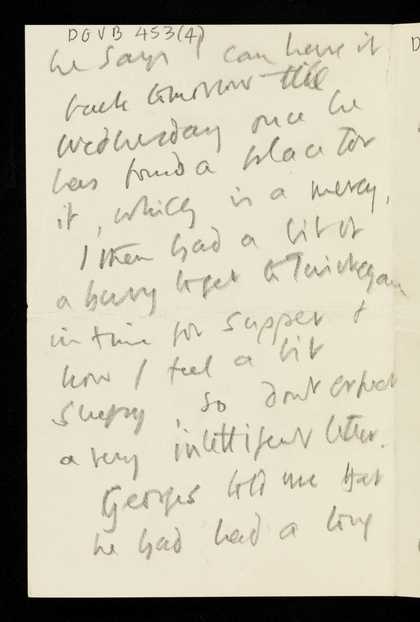 DGVB 453(4)
he says I can have it
back tomorrow till
Wednesday once he
has found a place for
it, which is a mercy.
I then had a bit of
a hurry to get to
in time for supper +
now I feel a bit
sleepy, so dont expect
a very intelligent letter.
Georges told me that
he had had a long